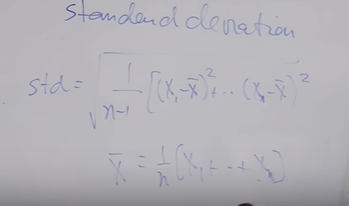 standend deviation
std = √ 1/n-1 [(x₁-x̄)²+·· (xₙ-x̄)²
x̄ = 1/n (x₁+··+xₙ)